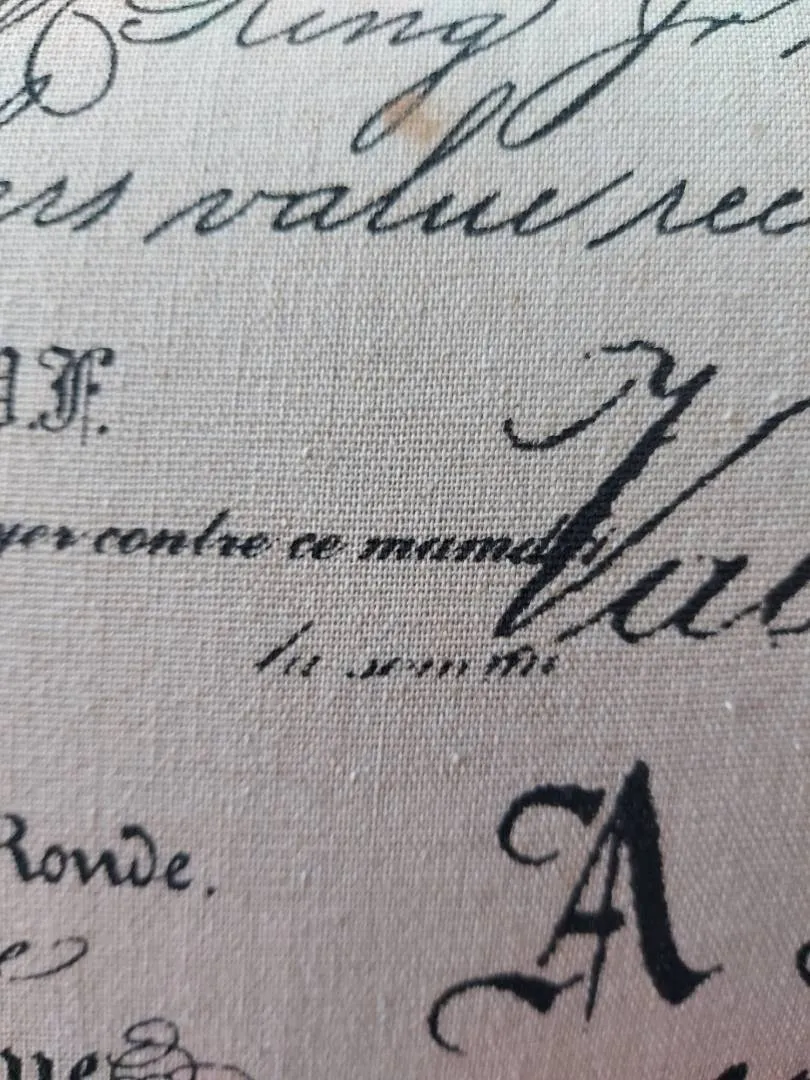 King Jr
ers value rec
F.
yer contre ce mamdti
la somme
Vas
Ronde.
A